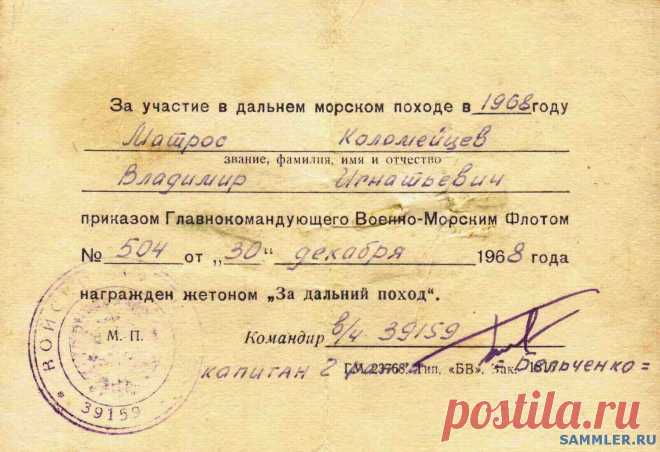 За участие в дальнем морском походе в 1968 году
Матрос Коломейцев
звание, фамилия, имя и отчество
Владимир Игнатьевич
приказом Главнокомандующего Военно-Морским Флотом
№ 504 от „30“ декабря 1968 года
награжден жетоном „За дальний поход“.
М. П. Командир в/ч 39159
капитан 2 Бельченко=
Тип. „БВ“. Зак.
39159
postila.ru
SAMMLER.RU